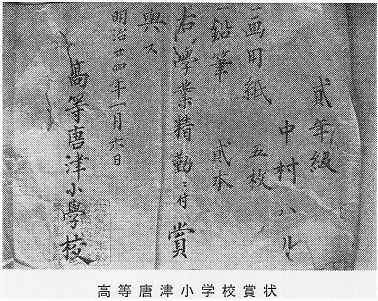 貳年級
中村ハル
一画用紙 五枚
一鉛筆 貳本
右学業精勤ニ付賞
與ス
明治廿四年一月六日
高等唐津小學校
高等唐津小学校賞状